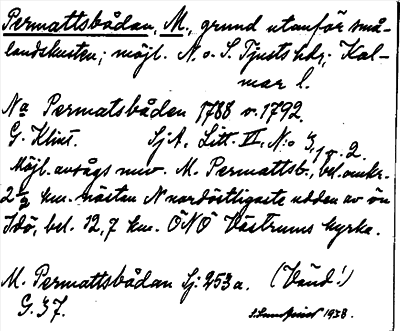 Permattsbådan, M., grund utanför små-
landskusten; möjl. N. o. S. Tjusts hdr; Kal-
mar l.
Na Permatsbåden 1788 o. 1792.
G. Klint. SjA, Litt. II, N:o 3, 1 o. 2.
Möjl. avsågs nuv. M. Permattsb., bel. omkr.
2 1/2 km. nästan N nordöstligaste udden av ön
Idö, bel. 12,7 km. ÖNÖ Västrums kyrka.
M. Permattsbådan Sj: 253a. (Vänd!)
G. 37. 1938.